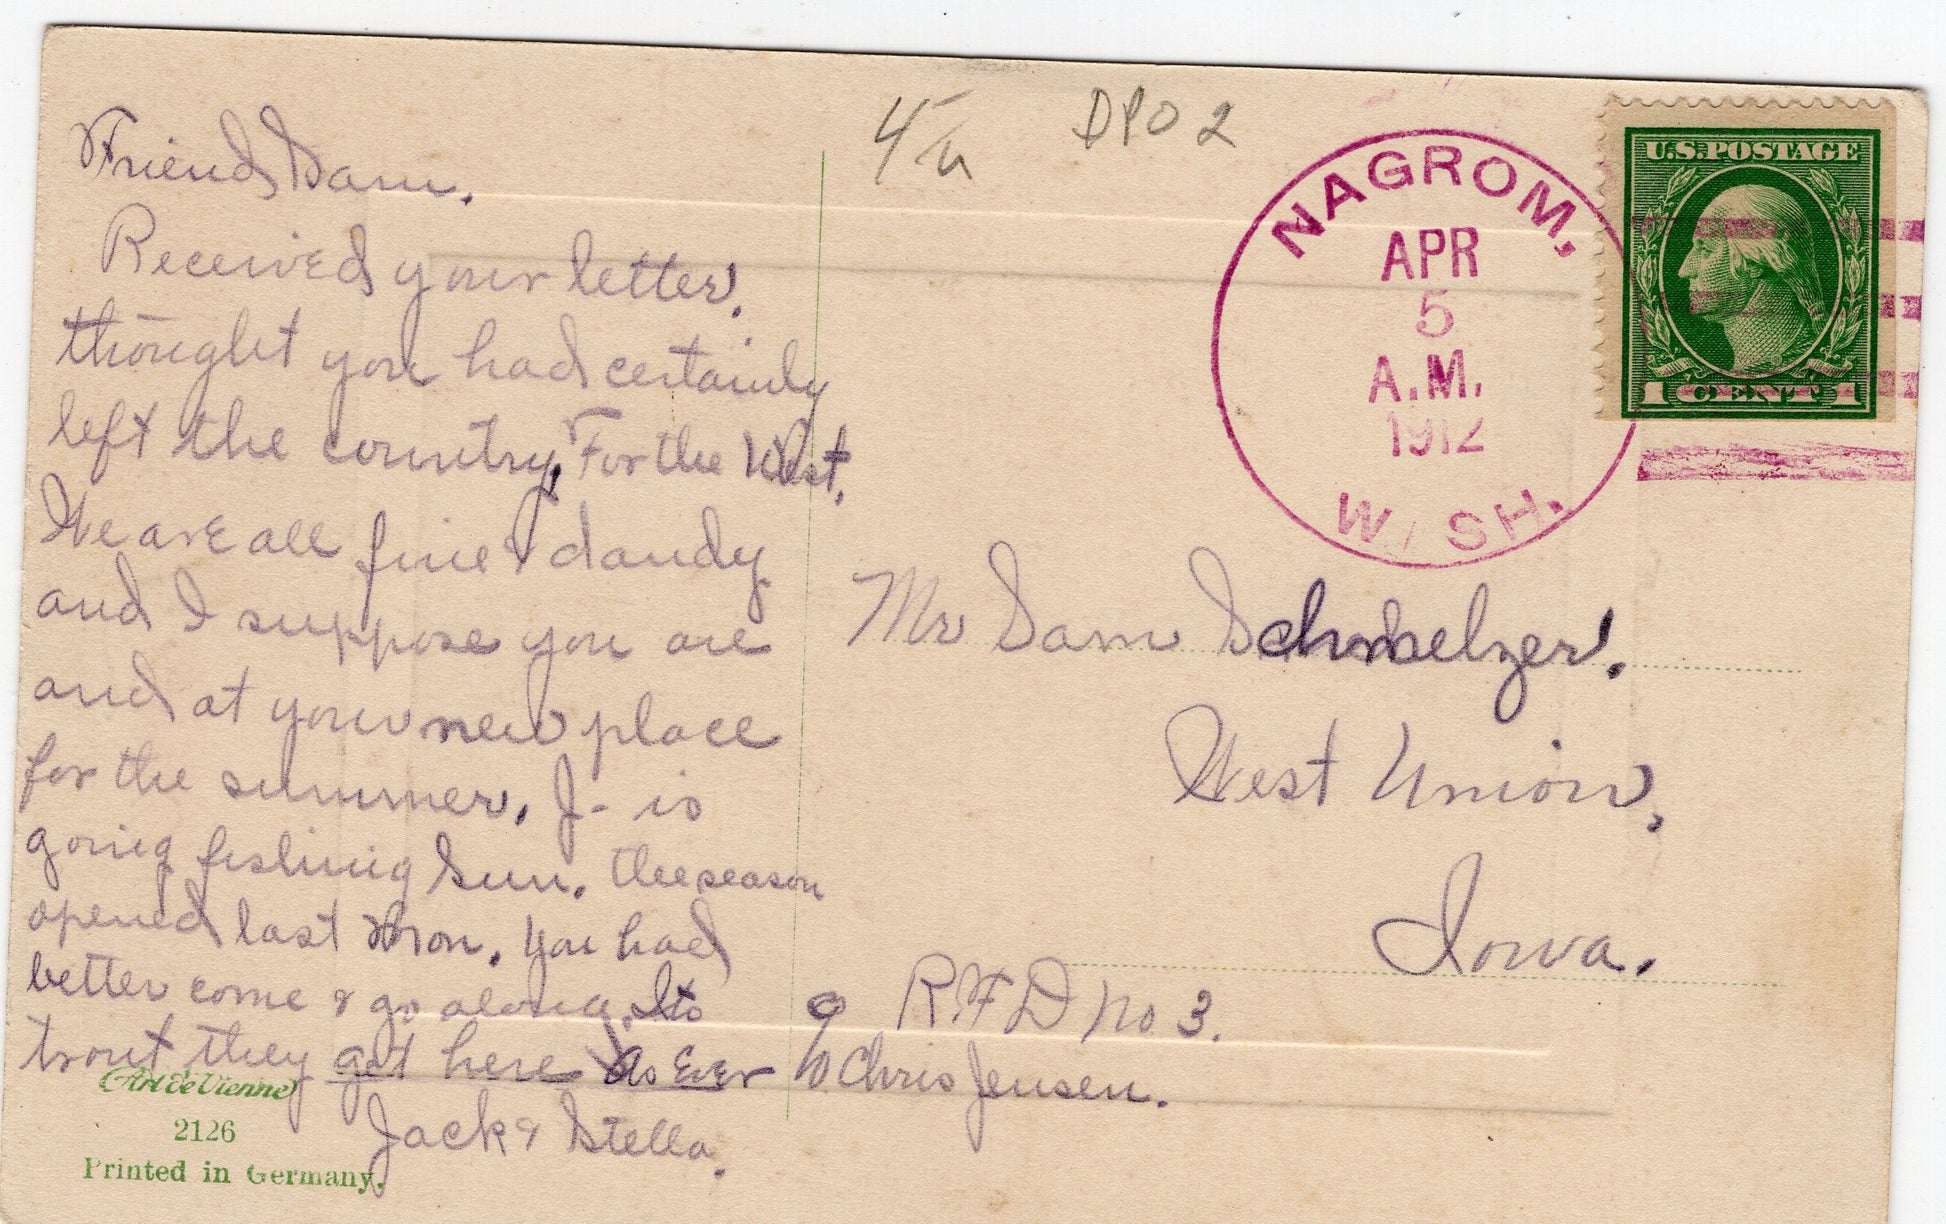 Friend Sam.
Received your letter.
thought you had certainly
left the country, For the West.
We are all fine & dandy
and I suppose you are
and at your new place
for the summer. J- is
going fishing Sun. the season
opened last Mon. You had
better come & go along. Its
trout they get here As Ever
Jack & Stella.
Art de Vienne
2126
Printed in Germany.
DPO 2
NAGROM,
APR
5
A.M.
1912
WASH.
U.S. POSTAGE
1 CENT 1
Mr Sam Schmelzer.
West Union,
Iowa.
R F D No 3.
% Chris Jensen.